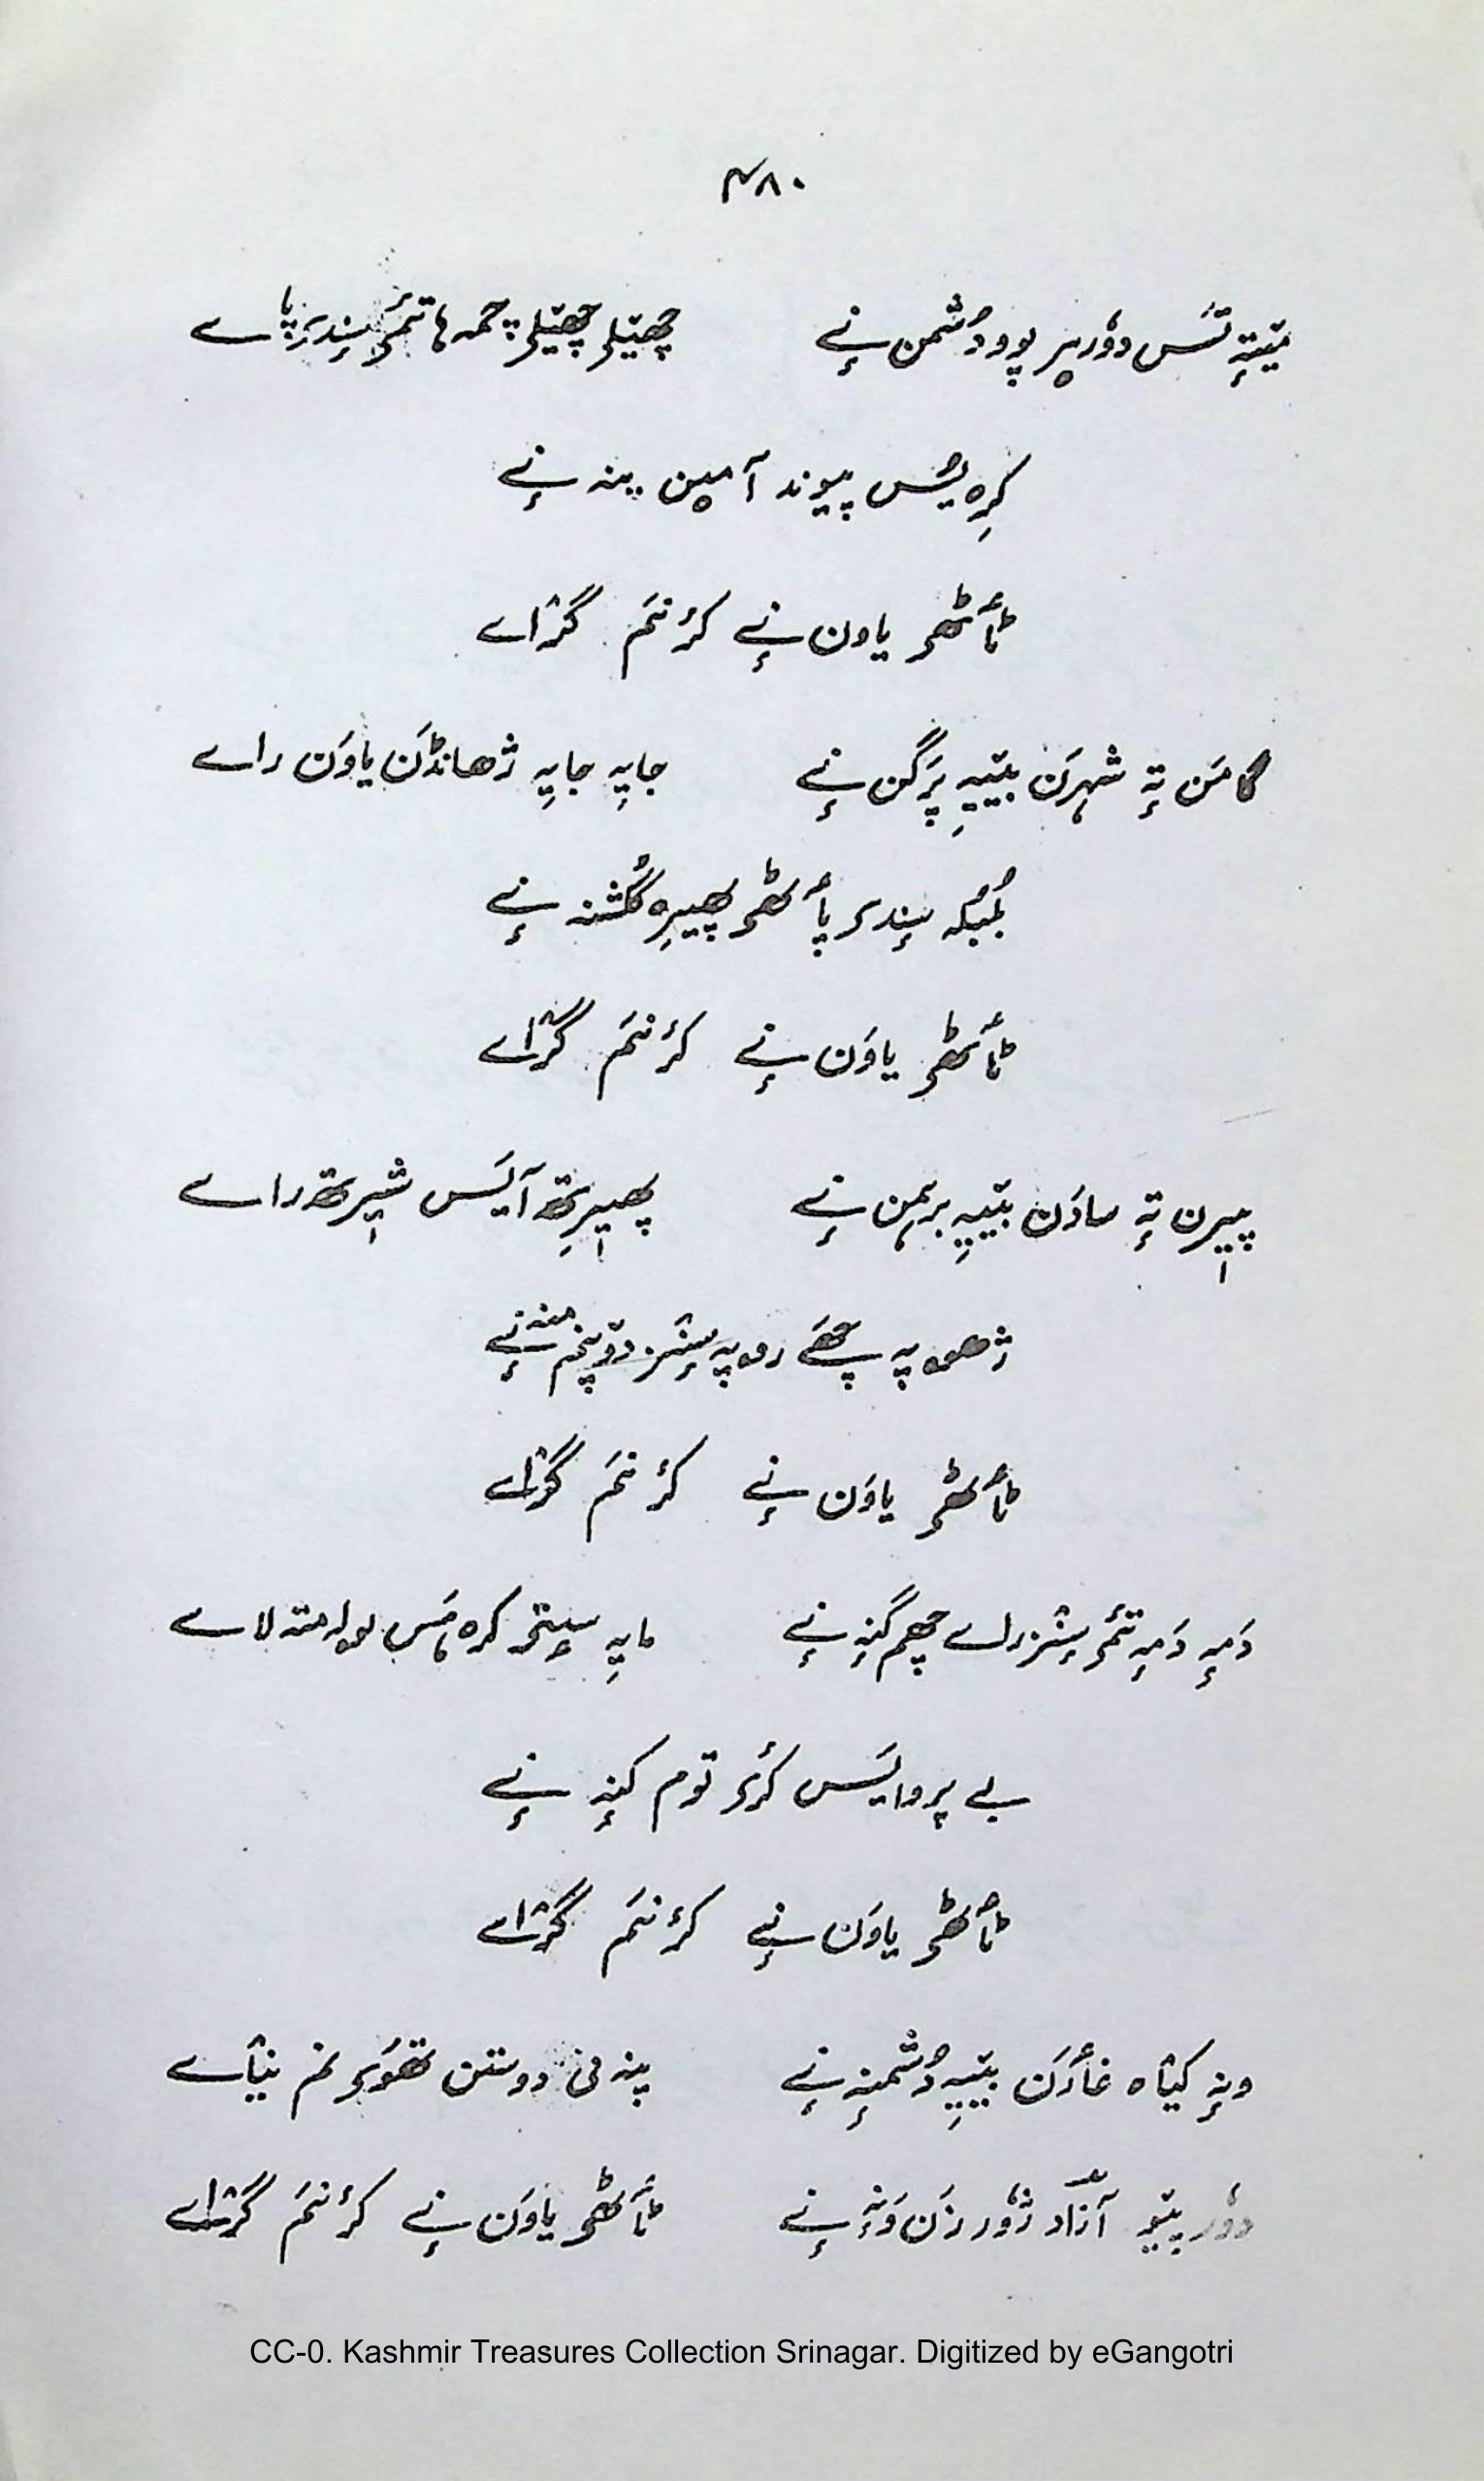 ۴۸۰
مَتیتہٕ تَس دوٗر پیر پوو دُشمن نےٕ چھیٚلۍ چھیٚلۍ چمہ ہا تٔمۍ سٕندِ پاے
کرِہ ہس پیوند آمین ینہ نےٕ
ٹٲٹھۍ یاون نےٕ کٔرنَم گژاے
گامَن تہٕ شہرَن بیٚیہِ پَرگن نےٕ جایہِ جایہِ ژھانڈَن یاوَن راے
بُمبُلہ سٕندۍ پٲٹھۍ پھیرِہ گلشنہ نےٕ
ٹٲٹھۍ یاوَن نےٕ کٔرنَم گژاے
پیٖرن تہٕ سادَن بیٚیہِ برہمن نےٕ پھیٖرِتھ آیَس شیٖرتھ راے
ژھوپہ چھَے روپہ سٕنز دوٚپنم منہ نےٕ
ٹٲٹھۍ یاوَن نےٕ کٔرنَم گژاے
دَمہٕ دَمہٕ تٔمۍ سٕنز راے چھم گنہٕ نےٕ مایہِ سیٖتۍ کرہ ہَس لولہ متہ لاے
بے پروایَس کٔرۍ توم کنہٕ نےٕ
ٹٲٹھۍ یاوَن نےٕ کٔرنَم گژاے
ونہٕ کیٛاہ غٲرَن بیٚیہِ دُشمنہٕ نےٕ پنہ نی دوستن تھٔوۍ نم نیٛاے
دوٗر پیٚو آزاد ژوٗر زَن وَنہٕ نےٕ ٹٲٹھۍ یاوَن نےٕ کٔرنَم گژاے
CC-0. Kashmir Treasures Collection Srinagar. Digitized by eGangotri